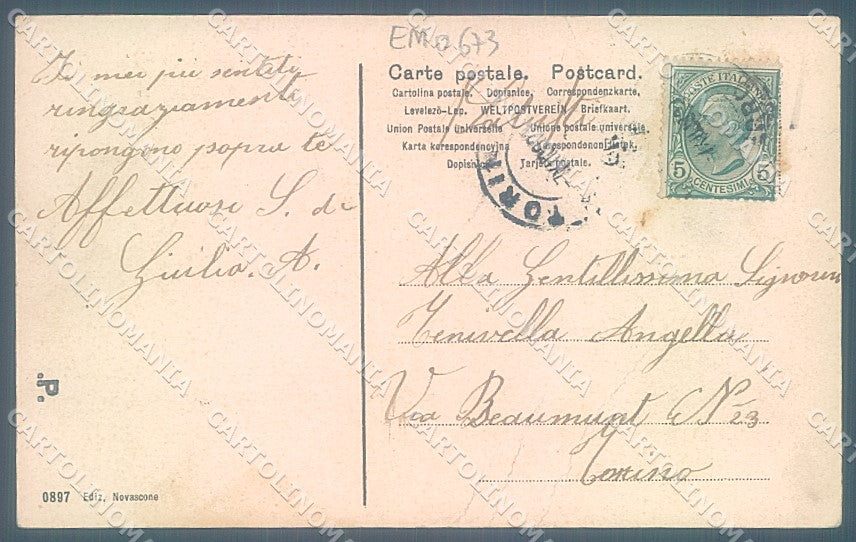 EM 673
Carte postale. Postcard.
Cartolina postale. Dopisnice. Correspondenzkarte.
Levelezö-Lap. WELTPOSTVEREIN Briefkaart.
Union Postale universelle Unione postale universale.
Karta korespondencyjna Korespondenční lístek.
Dopisnica Tarjeta postale.
POSTE ITALIANE
5 CENTESIMI 5
TORINO
I miei più sentiti
ringraziamenti
ripongono sopra te
Affettuosi S. da
Giulia. A.
Alla Gentilissima Signorina
Tenivella Angella
Via Beaumont N° 23
Torino
.P.
0897 Ediz. Novascone
CARTOLINOMANIA